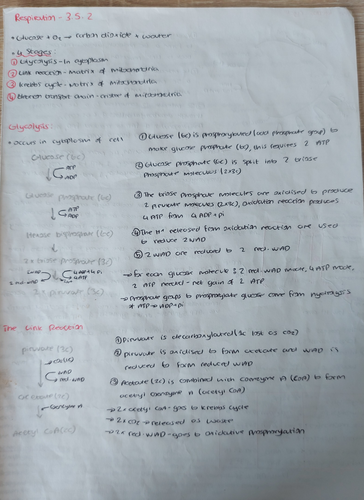 Respiration - 3.5.2
• Glucose + O₂ → carbon dioxide + water
• 4 Stages:
① Glycolysis - In cytoplasm
② Link reaction - Matrix of mitochondria
③ Krebs cycle - Matrix of mitochondria
④ Electron transport chain - of mitochondria
Glycolysis
• occurs in cytoplasm of cell
Glucose (6c)
ATP
ADP
Glucose phosphate (6c)
ATP
ADP
Hexose bisphosphate (6c)
2x triose phosphate (3c)
2x pyruvate (3c)
① Glucose (6c) is phosphorylated (add phosphate group) to
make glucose phosphate (6c), this requires 2 ATP
② Glucose phosphate (6c) is split into 2 triose
phosphate molecules (2x3c)
③ The triose phosphate molecules are oxidised to produce
2 pyruvate molecules (2x3c), oxidation reaction produces
4 ATP from 4 ADP + Pi
④ The H⁺ released from oxidation reaction are used
to reduce 2 NAD
⑤ 2 NAD are reduced to 2 red. NAD
→ For each glucose molecule: 2 red. NAD made, 4 ATP made,
2 ATP needed - net gain of 2 ATP
→ Phosphate groups to phosphorylate glucose come from hydrolysis
ATP → ADP + Pi
The Link Reaction
pyruvate (3c)
NAD
red NAD
acetate (2c)
coenzyme A
acetyl CoA (2c)
① Pyruvate is decarboxylated (3c lost as CO₂)
② pyruvate is oxidised to form acetate and NAD is
reduced to form reduced NAD
③ Acetate (2c) is combined with coenzyme A (CoA) to form
acetyl coenzyme A (acetyl CoA)
→ 2x acetyl CoA - goes to Krebs cycle
→ 2x CO₂ - released as waste
→ 2x red. NAD - goes to oxidative phosphorylation